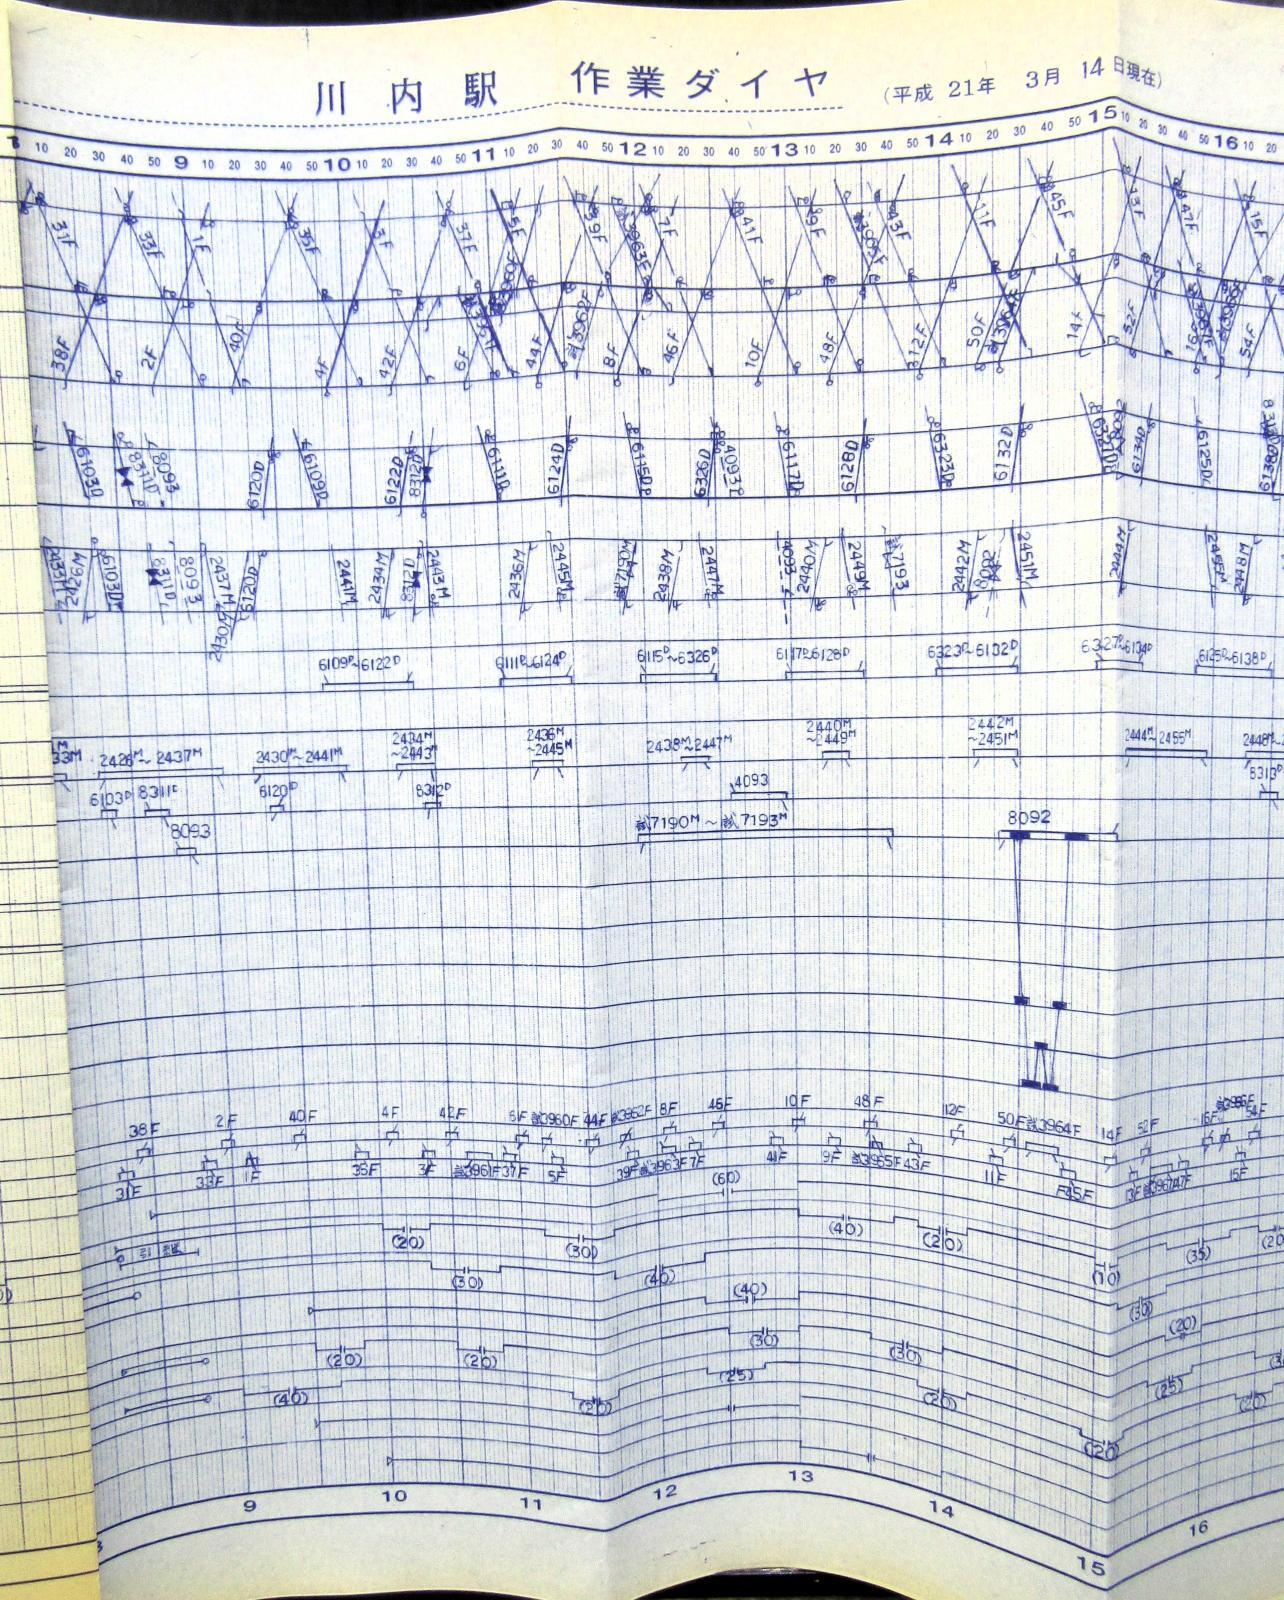 川内駅 作業ダイヤ (平成 21年 3月 14日現在)
10 20 30 40 50 9 10 20 30 40 50 10 10 20 30 40 50 11 10 20 30 40 50 12 10 20 30 40 50 13 10 20 30 40 50 14 10 20 30 40 50 15 10 20 30 40 50 16 10 20
31F 33F 1F 35F 3F 37F 5F 39F 7F 41F 9F 43F 11F 45F 13F 47F 15F
38F 2F 40F 4F 42F 6F 44F 試3962F 8F 46F 10F 48F 12F 50F 14F 52F 54F
6103D 8311D 8093 6120D 6109D 6122D 8312D 6111D 6124D 6115D 6326D 4093 6117D 6128D 6323D 6132D 6134D 6125D 6138D
2426M 6103D 8311D 8093 2437M 2430M 6120D 2441M 2434M 8312D 2443M 2436M 2445M 2438M 2447M 4093 2440M 2449M 試7193 2442M 8092 2451M 2444M 2455M 2448M
6109D~6122D 6111D~6124D 6115D~6326D 6117D~6128D 6323D~6132D 6327D~6134D 6125D~6138D
33M 2426M~2437M 2430M~2441M 2434M~2443M 2436M~2445M 2438M~2447M 2440M~2449M 2442M~2451M 2444M~2455M 2448M~
6103D 8311D 6120D 8312D 4093 8313D
8093 試7190M~試7193M 8092
38F 2F 40F 4F 42F 6F 試3960F 44F 試3962F 8F 46F 10F 48F 12F 50F 試3964F 14F 52F 16F 54F
31F 33F 1F 35F 3F 試3961F 37F 5F 39F 試3963F 7F 41F 9F 試3965F 43F 11F 45F 47F 15F
(60)
(20) (30) (40) (20) (10) (35) (20
(30) (40) (30)
(40) (20)
(20) (20) (30) (30)
(25) (25)
(40) (20) (20) (20)
(20)
9 10 11 12 13 14 15 16